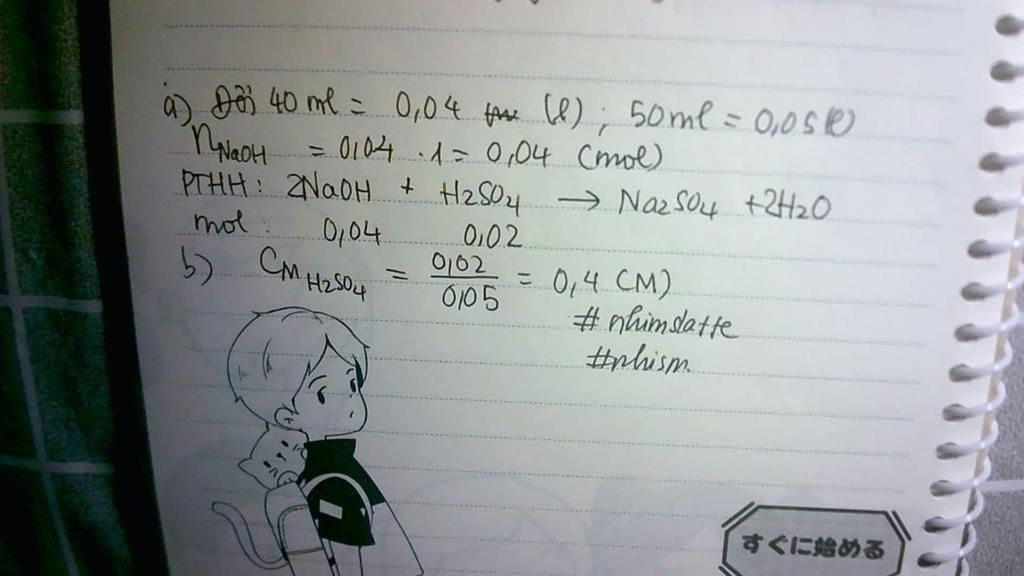 a) Đổi 40 ml = 0,04 (l) ; 50 ml = 0,05 (l)
nNaOH = 0,04 . 1 = 0,04 (mol)
PTHH : 2NaOH + H2SO4 → Na2SO4 + 2H2O
mol : 0,04 0,02
b) CM H2SO4 = 0,02 / 0,05 = 0,4 (M)
# nhimslatte
#nhism.
すぐに始める